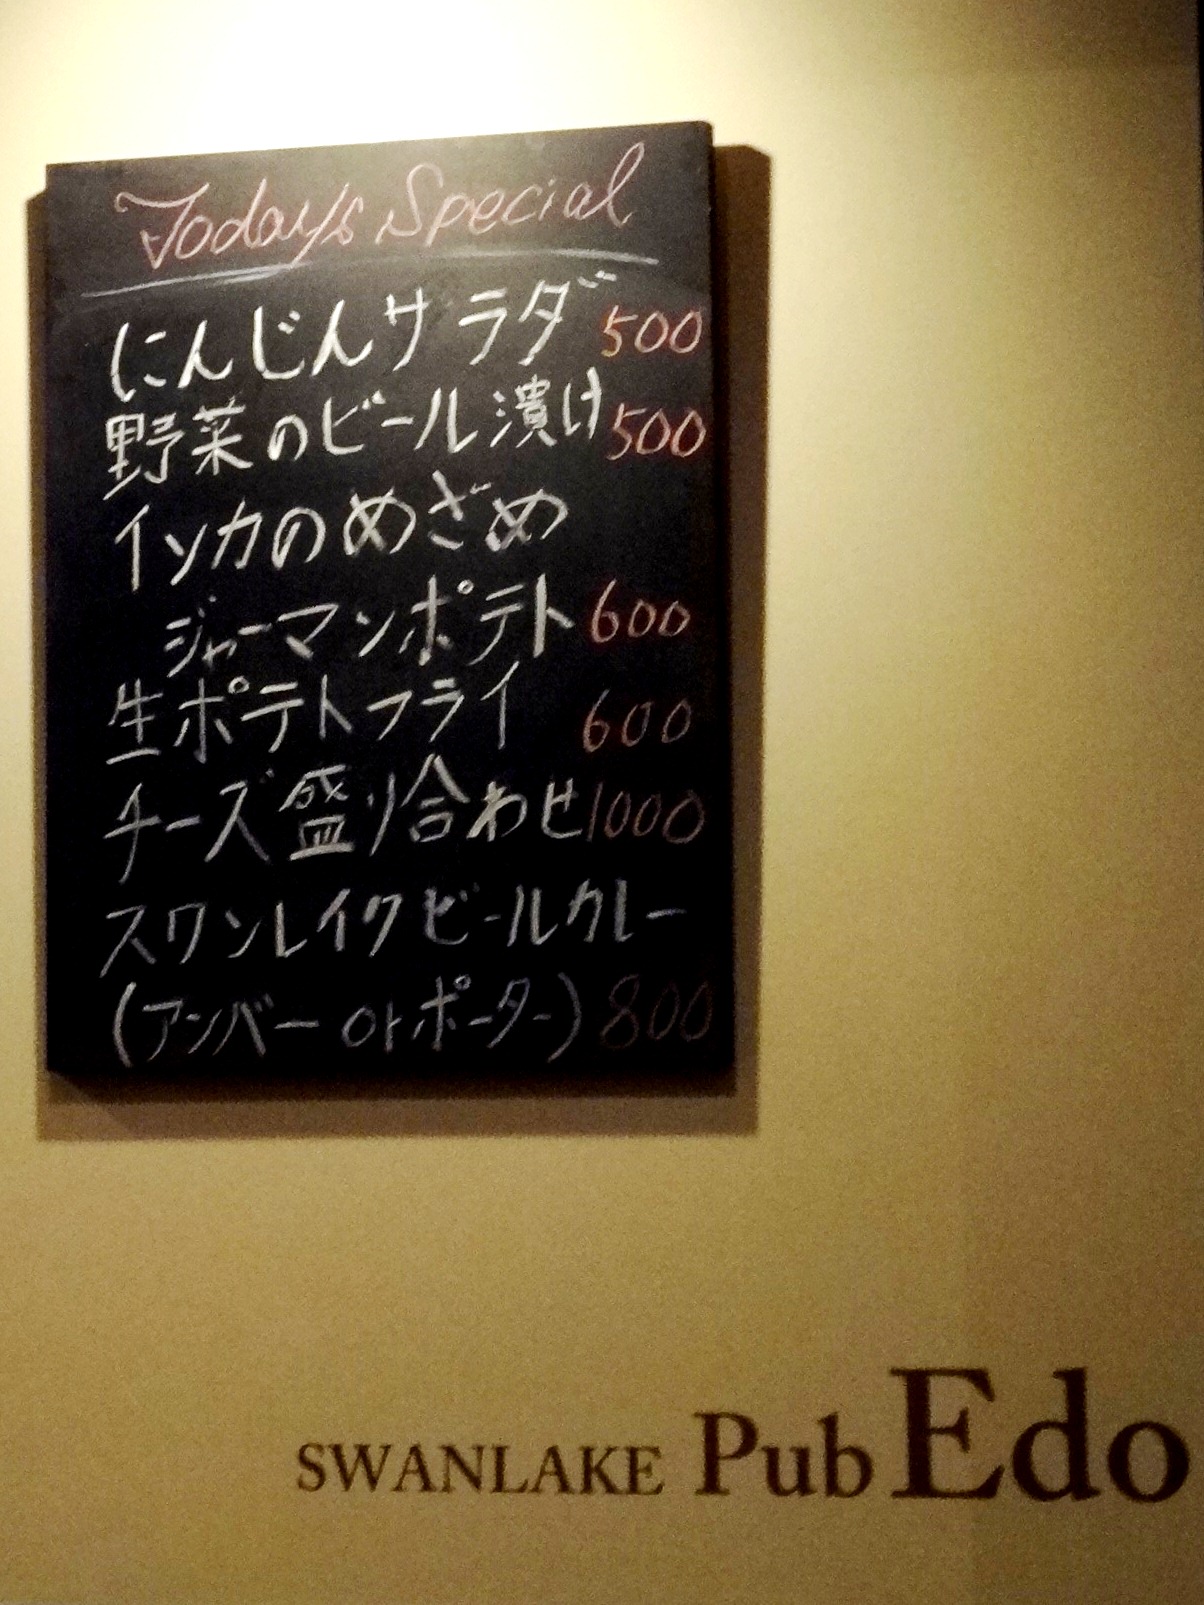 Today's Special
にんじんサラダ 500
野菜のビール漬け 500
インカのめざめ
ジャーマンポテト 600
生ポテトフライ 600
チーズ盛り合わせ 1000
スワンレイクビールカレー
(アンバー or ポーター) 800
SWANLAKE Pub Edo